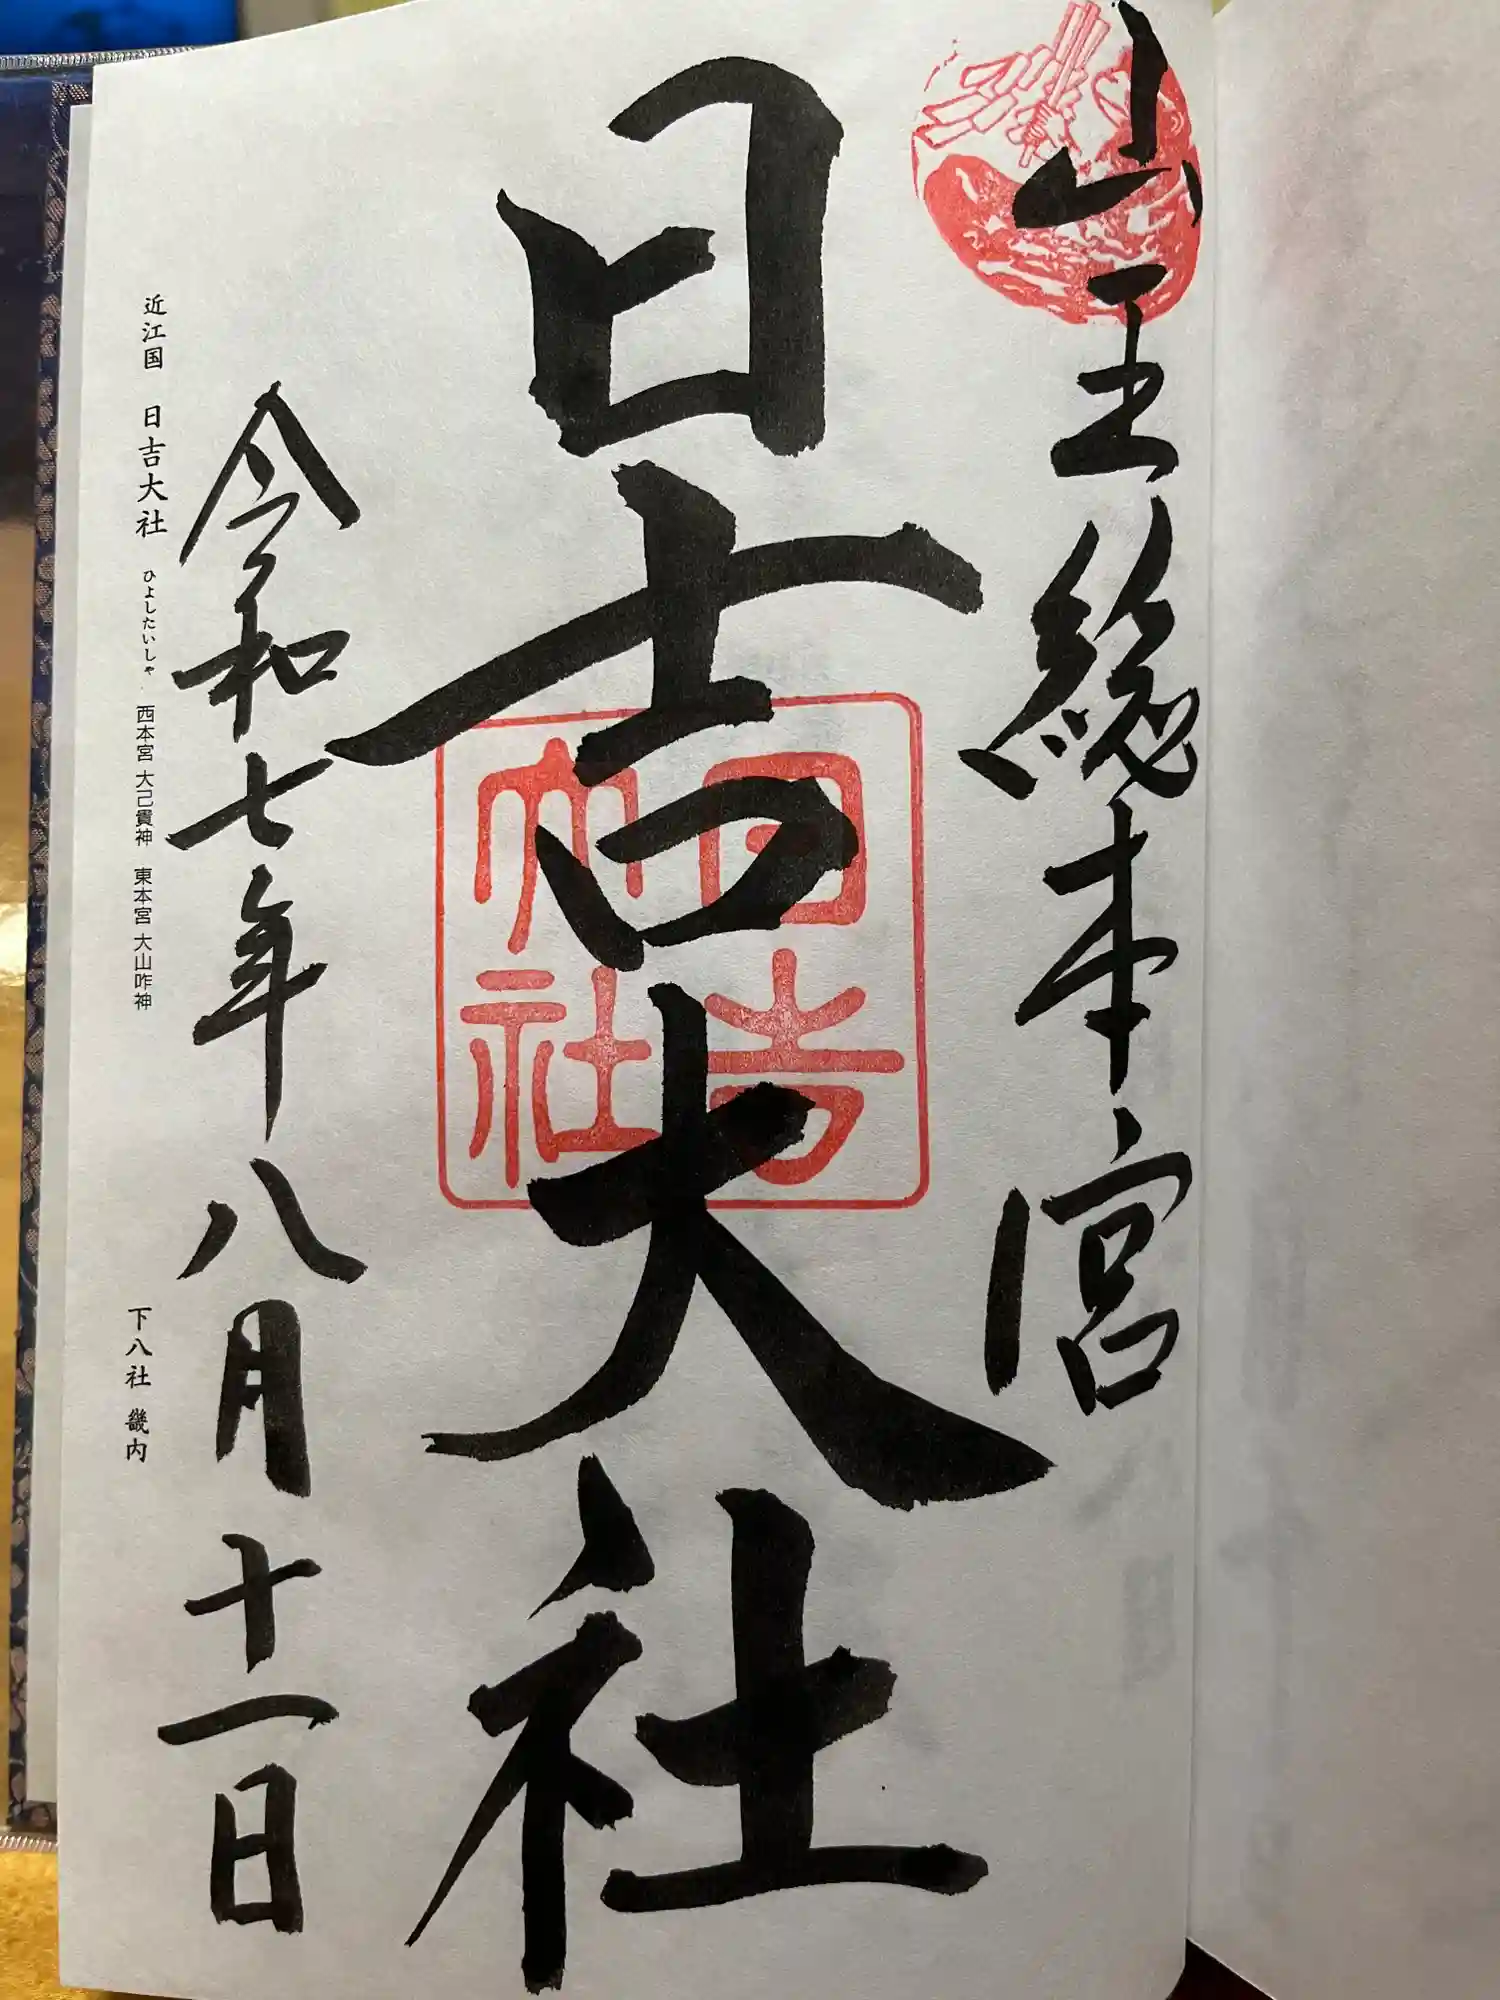 山王総本宮
日吉大社
日吉大社
令和七年八月十一日
近江国 日吉大社 ひよしたいしゃ 西本宮 大己貴神 東本宮 大山咋神 下八社 畿内